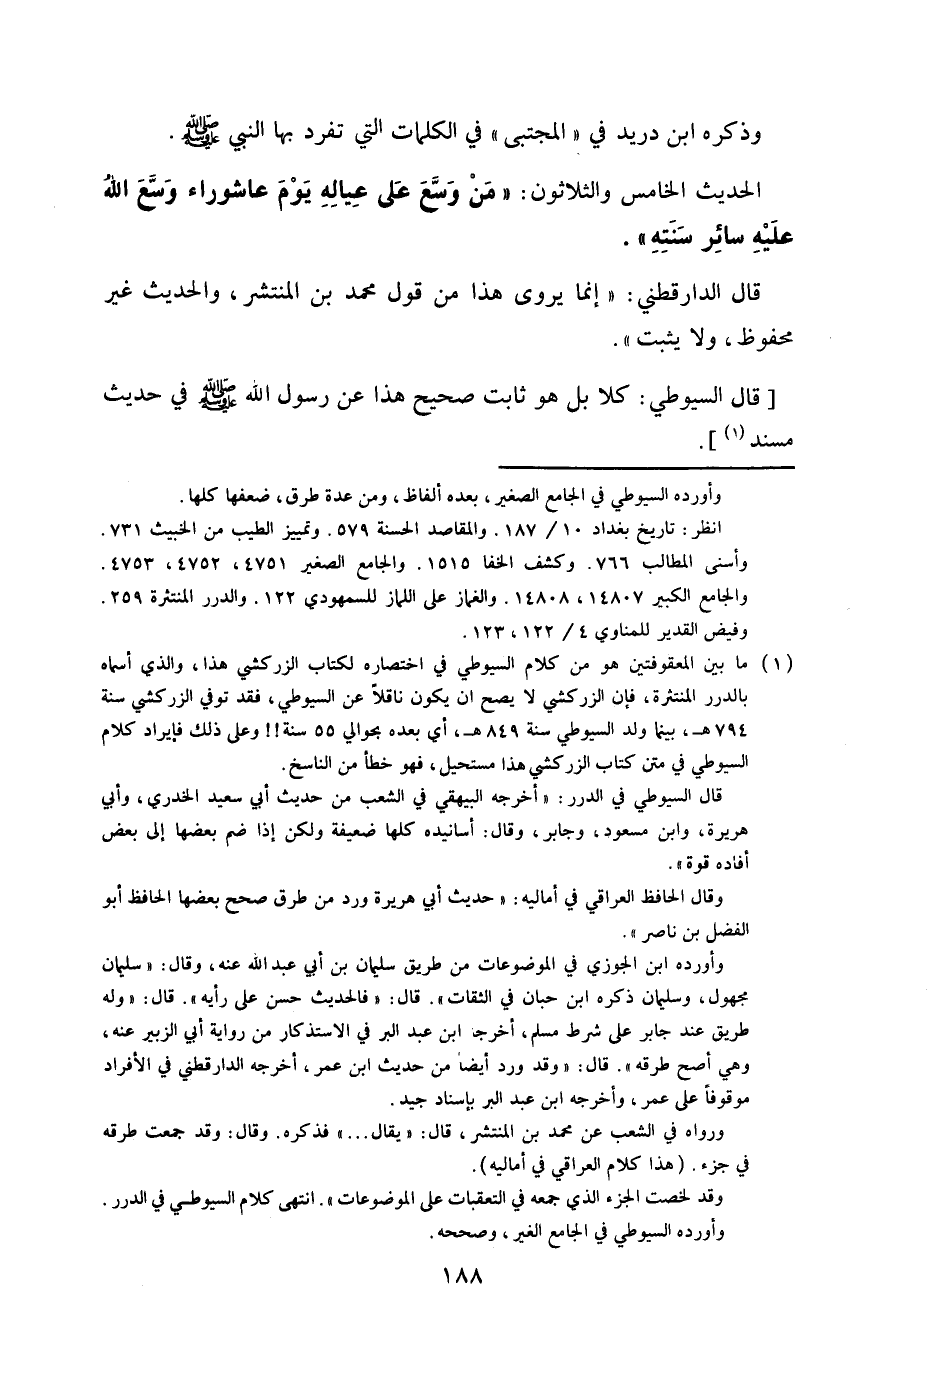 وذكره ابن دريد في « المجتبى » في الكلمات التي تفرد بها النبي ﷺ .
الحديث الخامس والثلاثون: « مَنْ وَسَّعَ عَلى عِيالِهِ يَوْمَ عاشوراء وَسَّعَ اللهُ
علَيْهِ سائِر سَنَتِهِ» .
قال الدارقطني: « إنما يروى هذا من قول محمد بن المنتشر ، والحديث غير
محفوظ ، ولا يثبت » .
[ قال السيوطي: كلا بل هو ثابت صحيح هذا عن رسول الله ﷺ في حديث
مسند (١) ] .
وأورده السيوطي في الجامع الصغير ، بعده ألفاظ ، ومن عدة طرق ، ضعفها كلها .
انظر : تاريخ بغداد ١٠ / ١٨٧ . والمقاصد الحسنة ٥٧٩ . وتمييز الطيب من الخبيث ٧٣١ .
وأسنى المطالب ٧٦٦ . وكشف الخفا ١٥١٥ . والجامع الصغير ٤٧٥١ ، ٤٧٥٢ ، ٤٧٥٣ .
والجامع الكبير ١٤٨٠٧ ، ١٤٨٠٨ . والغماز على اللماز للسمهودي ١٢٢ . والدرر المنتثرة ٢٥٩ .
وفيض القدير للمناوي ٤ / ١٢٢ ، ١٢٣ .
(١) ما بين المعقوفتين هو من كلام السيوطي في اختصاره لكتاب الزركشي هذا ، والذي أسماه
بالدرر المنتثرة ، فإن الزركشي لا يصح ان يكون ناقلاً عن السيوطي ، فقد توفي الزركشي سنة
٧٩٤ هـ ، بينما ولد السيوطي سنة ٨٤٩ هـ ، أي بعده بحوالي ٥٥ سنة!! وعلى ذلك فإيراد كلام
السيوطي في متن كتاب الزركشي هذا مستحيل ، فهو خطأ من الناسخ .
قال السيوطي في الدرر : « أخرجه البيهقي في الشعب من حديث أبي سعيد الخدري ، وأبي
هريرة ، وابن مسعود ، وجابر ، وقال: أسانيده كلها ضعيفة ولكن إذا ضم بعضها إلى بعض
أفاده قوة» .
وقال الحافظ العراقي في أماليه: « حديث أبي هريرة ورد من طرق صحح بعضها الحافظ أبو
الفضل بن ناصر » .
وأورده ابن الجوزي في الموضوعات من طريق سليمان بن أبي عبد الله عنه ، وقال: « سليمان
مجهول ، وسليمان ذكره ابن حبان في الثقات» . قال: « فالحديث حسن على رأيه» . قال: « وله
طريق عند جابر على شرط مسلم ، أخرجها ابن عبد البر في الاستذكار من رواية أبي الزبير عنه ،
وهي أصح طرقه» . قال: « وقد ورد أيضاً من حديث ابن عمر ، أخرجه الدارقطني في الأفراد
موقوفاً على عمر ، وأخرجه ابن عبد البر بإسناد جيد .
ورواه في الشعب عن محمد بن المنتشر ، قال: « يقال ... » فذكره . وقال: وقد جمعت طرقه
في جزء . (هذا كلام العراقي في أماليه) .
وقد لخصت الجزء الذي جمعه في التعقبات على الموضوعات» . انتهى كلام السيوطي في الدرر .
وأورده السيوطي في الجامع الغير ، وصححه .
١٨٨